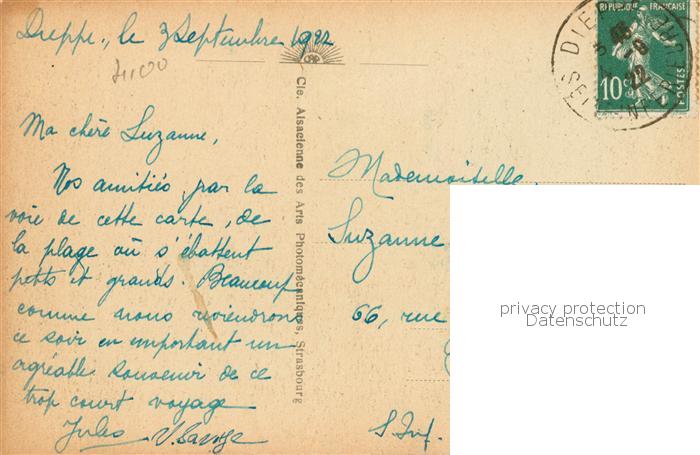 Dieppe, le 3 Septembre 1922
Ma chère Suzanne,
Nos amitiés, par la
voie de cette carte, de
la plage où s'ébattent
petits et grands. Beaucoup
comme nous reviendrons
ce soir en emportant un
agréable souvenir de ce
trop court voyage
Jules
Cie. Alsacienne des Arts Photomécaniques, Strasbourg
REPUBLIQUE FRANÇAISE
10c
POSTES
22
Mademoiselle
Suzanne
66, rue
S. Inf.
privacy protection
Datenschutz